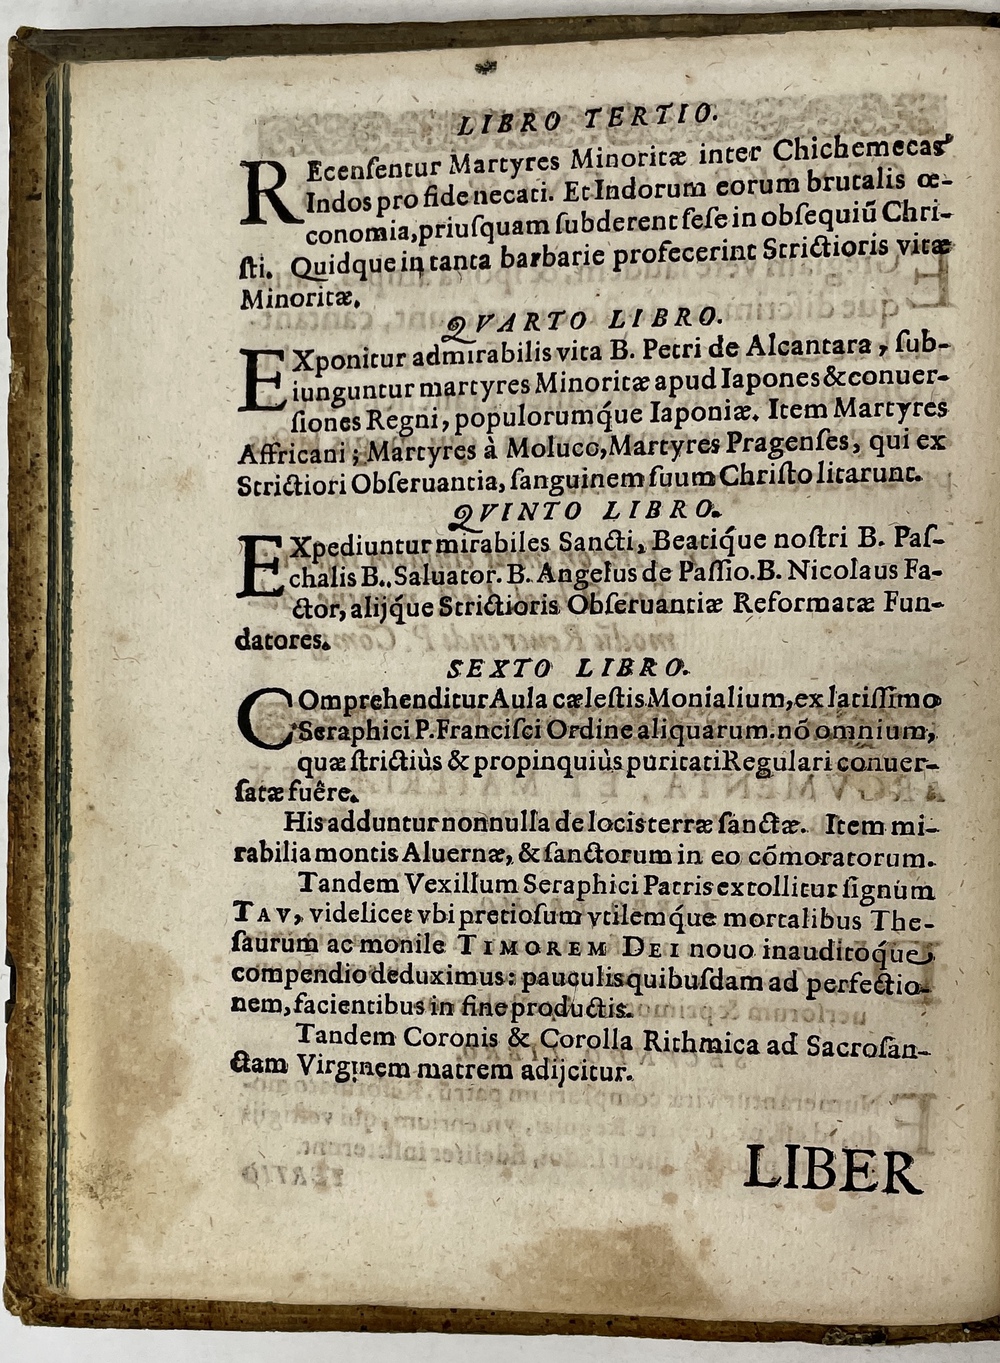 LIBRO TERTIO.
REcenſentur Martyres Minoritæ inter Chichemecas
Indos pro fide necati. Et Indorum eorum brutalis œ-
conomia, priuſquam ſubderent ſeſe in obſequiũ Chri-
ſti. Quidque in tanta barbarie profecerint Strictioris vitæ
Minoritæ.
QVARTO LIBRO.
EXponitur admirabilis vita B. Petri de Alcantara, ſub-
iunguntur martyres Minoritæ apud Iapones & conuer-
ſiones Regni, populorumq́ue Iaponiæ. Item Martyres
Affricani; Martyres à Moluco, Martyres Pragenſes, qui ex
Strictiori Obſeruantia, ſanguinem ſuum Chriſto litarunt.
QVINTO LIBRO.
EXpediuntur mirabiles Sancti, Beatiq́ue noſtri B. Paſ-
chalis B. Saluator. B. Angelus de Paſſio. B. Nicolaus Fa-
ctor, alijq́ue Strictioris Obſeruantiæ Reformatæ Fun-
datores.
SEXTO LIBRO.
COmprehenditur Aula cæleſtis Monialium, ex latiſſimo
Seraphici P. Franciſci Ordine aliquarum. nõ omnium,
quæ ſtrictiùs & propinquiùs puritati Regulari conuer-
ſatæ fuêre.
His adduntur nonnulla de locis terræ ſanctæ. Item mi-
rabilia montis Aluernæ, & ſanctorum in eo cõmoratorum.
Tandem Vexillum Seraphici Patris extollitur ſignum
TAV, videlicet vbi pretioſum vtilemq́ue mortalibus The-
ſaurum ac monile TIMOREM DEI nouo inauditoq́ue
compendio deduximus: pauculis quibuſdam ad perfectio-
nem, facientibus in fine productis.
Tandem Coronis & Corolla Rithmica ad Sacroſan-
ctam Virginem matrem adijcitur.
LIBER